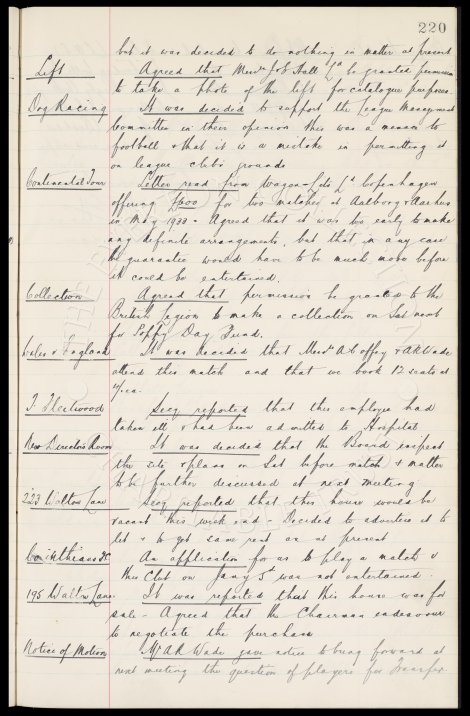 220
but it was decided to do nothing in matter at present
Lift Agreed that Messrs J & E Hall Ld be granted permission
to take a photo of the lift for catalogue purposes.
Dog Racing It was decided to support the League Management
Committee in their opinion this was a menace to
football & that it is a mistake in permitting it
on league club's grounds
Continental Tour Letter read from Wagon-Lits Ld Copenhagen
offering £600 for two matches at Aalborg & Aarhus
in May 1933 - Agreed that it was too early to make
any definite arrangements, but that in any case
the guarantee would have to be much more before
it could be entertained.
Collection Agreed that permission be granted to the
British Legion to make a collection on Sat next
for Poppy Day Fund.
Wales v England It was decided that Messrs A Coffey & A R Wade
attend this match and that we book 12 seats at
J. Fleetwood Secy reported that this employee had
taken ill & had been admitted to Hospital
New Directors Room It was decided that the Board inspect
the site & plans on Sat before match & matter
to be further discussed at next meeting
223 Walton Lane Secy reported that this house would be
vacant this week end - Decided to advertise it to
let & to get same rent as at present
Corinthians FC An application for us to play a match v
this Club on Jany 5th was not entertained.
195 Walton Lane It was reported that this house was for
sale - Agreed that the Chairman endeavour
to negotiate the purchase
Notice of Motion Mr A R Wade gave notice to bring forward at
next meeting the question of players for Transfer